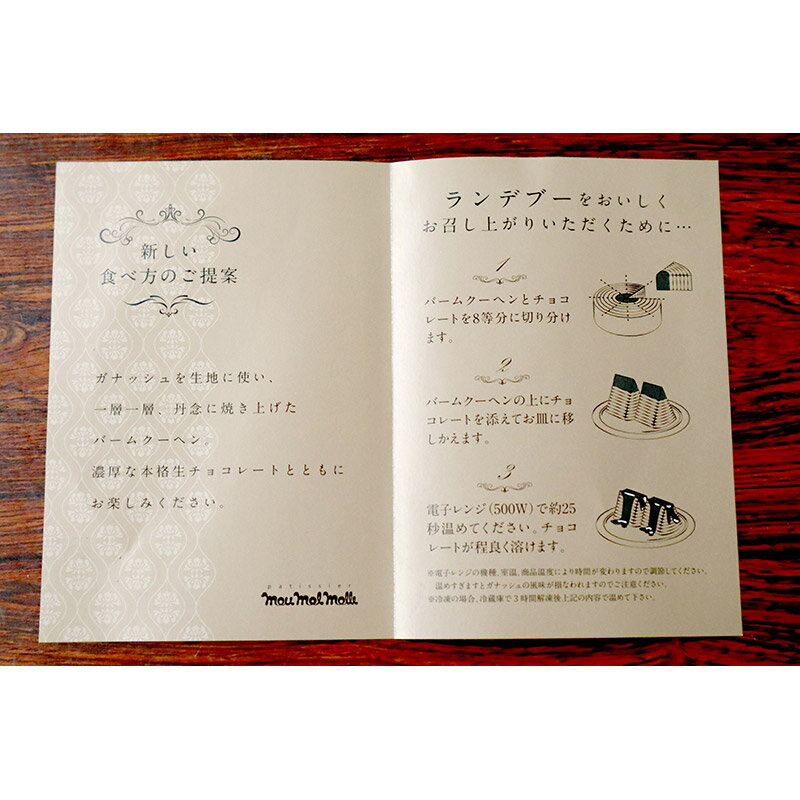 新しい
食べ方のご提案
ガナッシュを生地に使い、
一層一層、丹念に焼き上げた
バームクーヘン。
濃厚な本格生チョコレートとともに
お楽しみください。
patissier
mou mel molle
ランデブーをおいしく
お召し上がりいただくために…
1
バームクーヘンとチョコ
レートを8等分に切り分け
ます。
2
バームクーヘンの上にチョ
コレートを添えてお皿に移
しかえます。
3
電子レンジ(500W)で約25
秒温めてください。チョコ
レートが程良く溶けます。
※電子レンジの機種、室温、商品温度により時間が変わりますので調節してください。
温めすぎますとガナッシュの風味が損なわれますのでご注意ください。
※冷凍の場合、冷蔵庫で3時間解凍後上記の内容で温めて下さい。